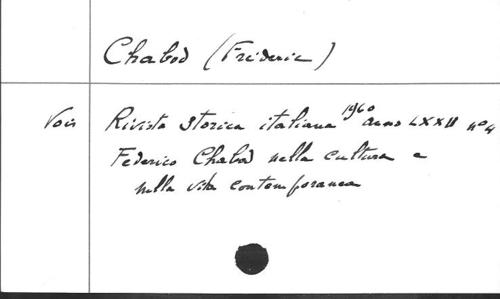 Chabod (Fréderic)
Voir Rivista Storica italiana 1960 anno LXXII nº 4
Federico Chabod nella cultura e
nella vita contemporanea